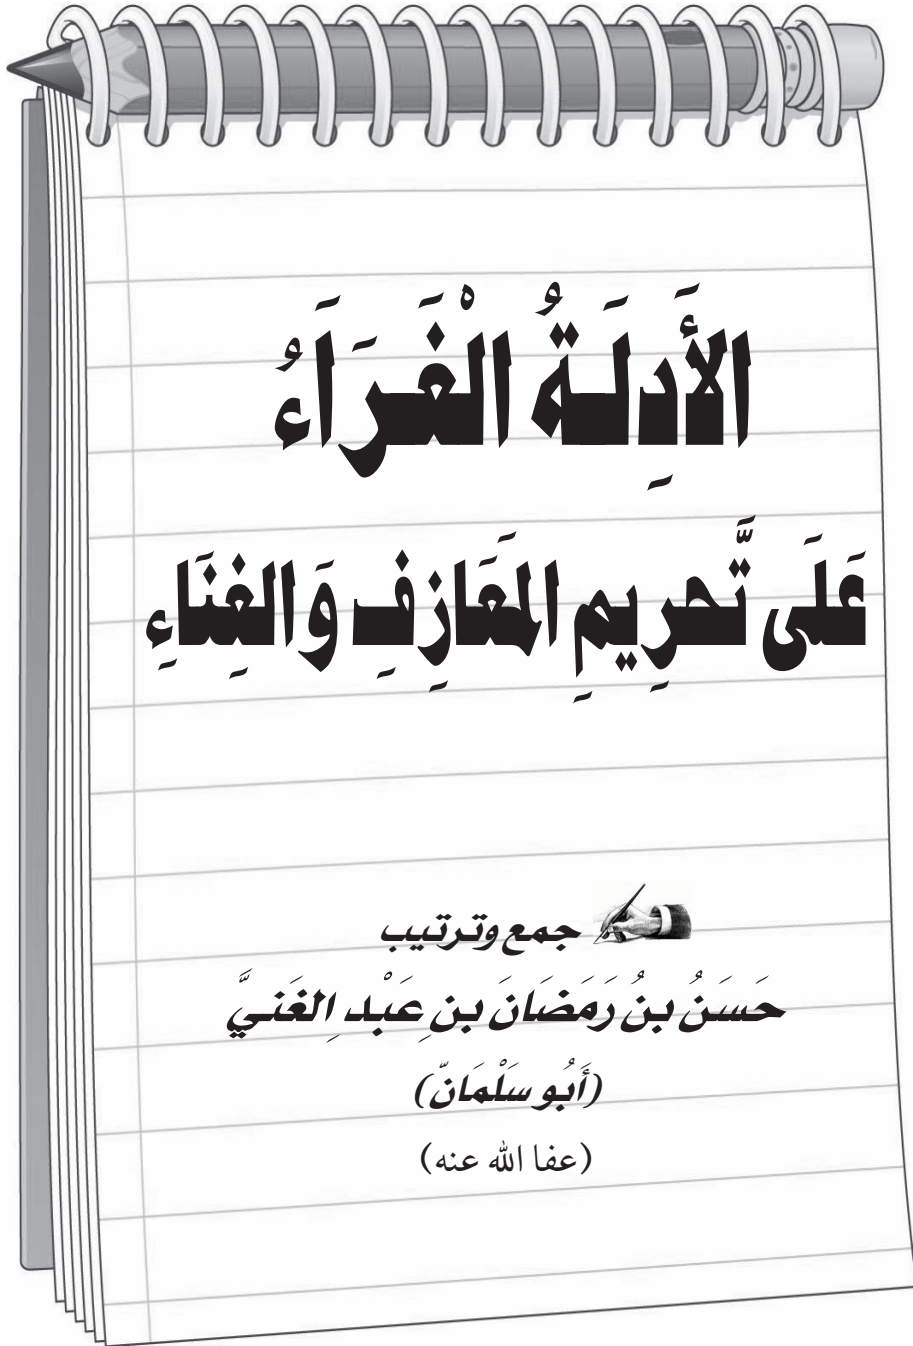 الأَدِلَةُ الْغَرَاَءُ
عَلَى تَّحرِيمِ المَعَازِفِ وَالغِنَاءِ
جمع وترتيب
حَسَنُ بنُ رَمَضَانَ بنِ عَبْدِ الغَنيَّ
(أَبُو سَلْمَانّ)
(عفا الله عنه)